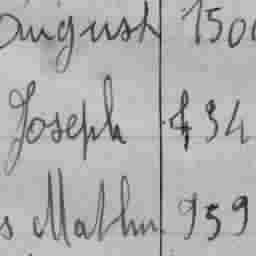 August 150
Joseph 434
s Mathu 959